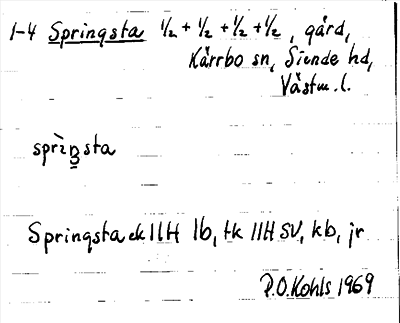 1-4 Springsta ½ + ½ + ½ + ½, gård,
Kärrbo sn, Siende hd,
Västm. l.
sprìŋsta
Springsta ek 11H 1b, tk 11H SV, kb, jr
P.O. Kohls 1969